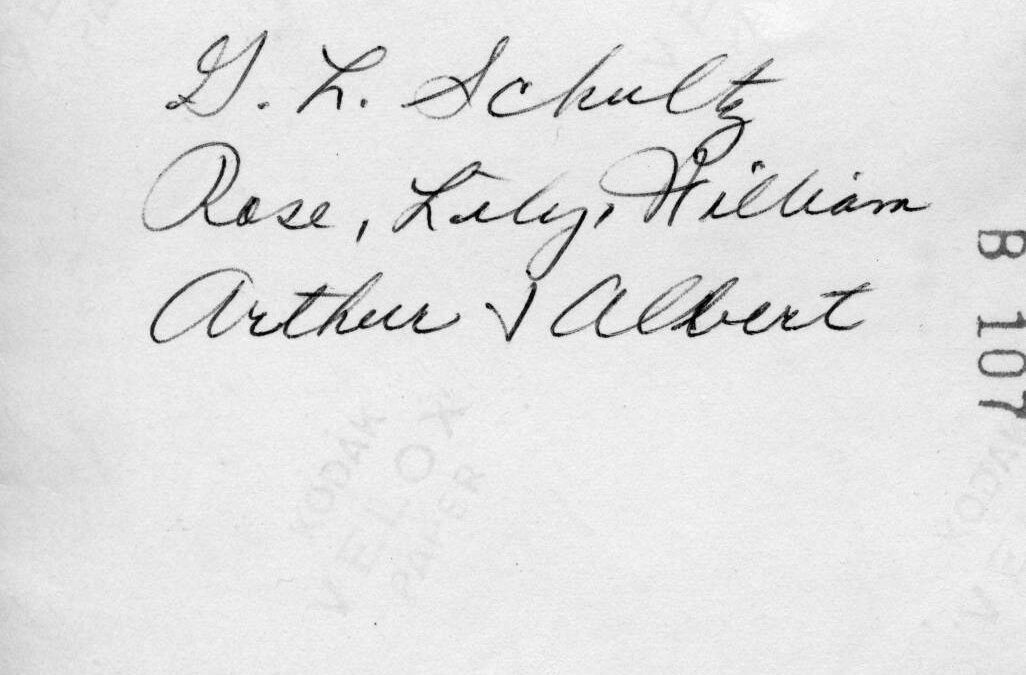 G. L. Schultz
Rose, Lily, William
Arthur & Albert
B 107
KODAK
VELOX
PAPER